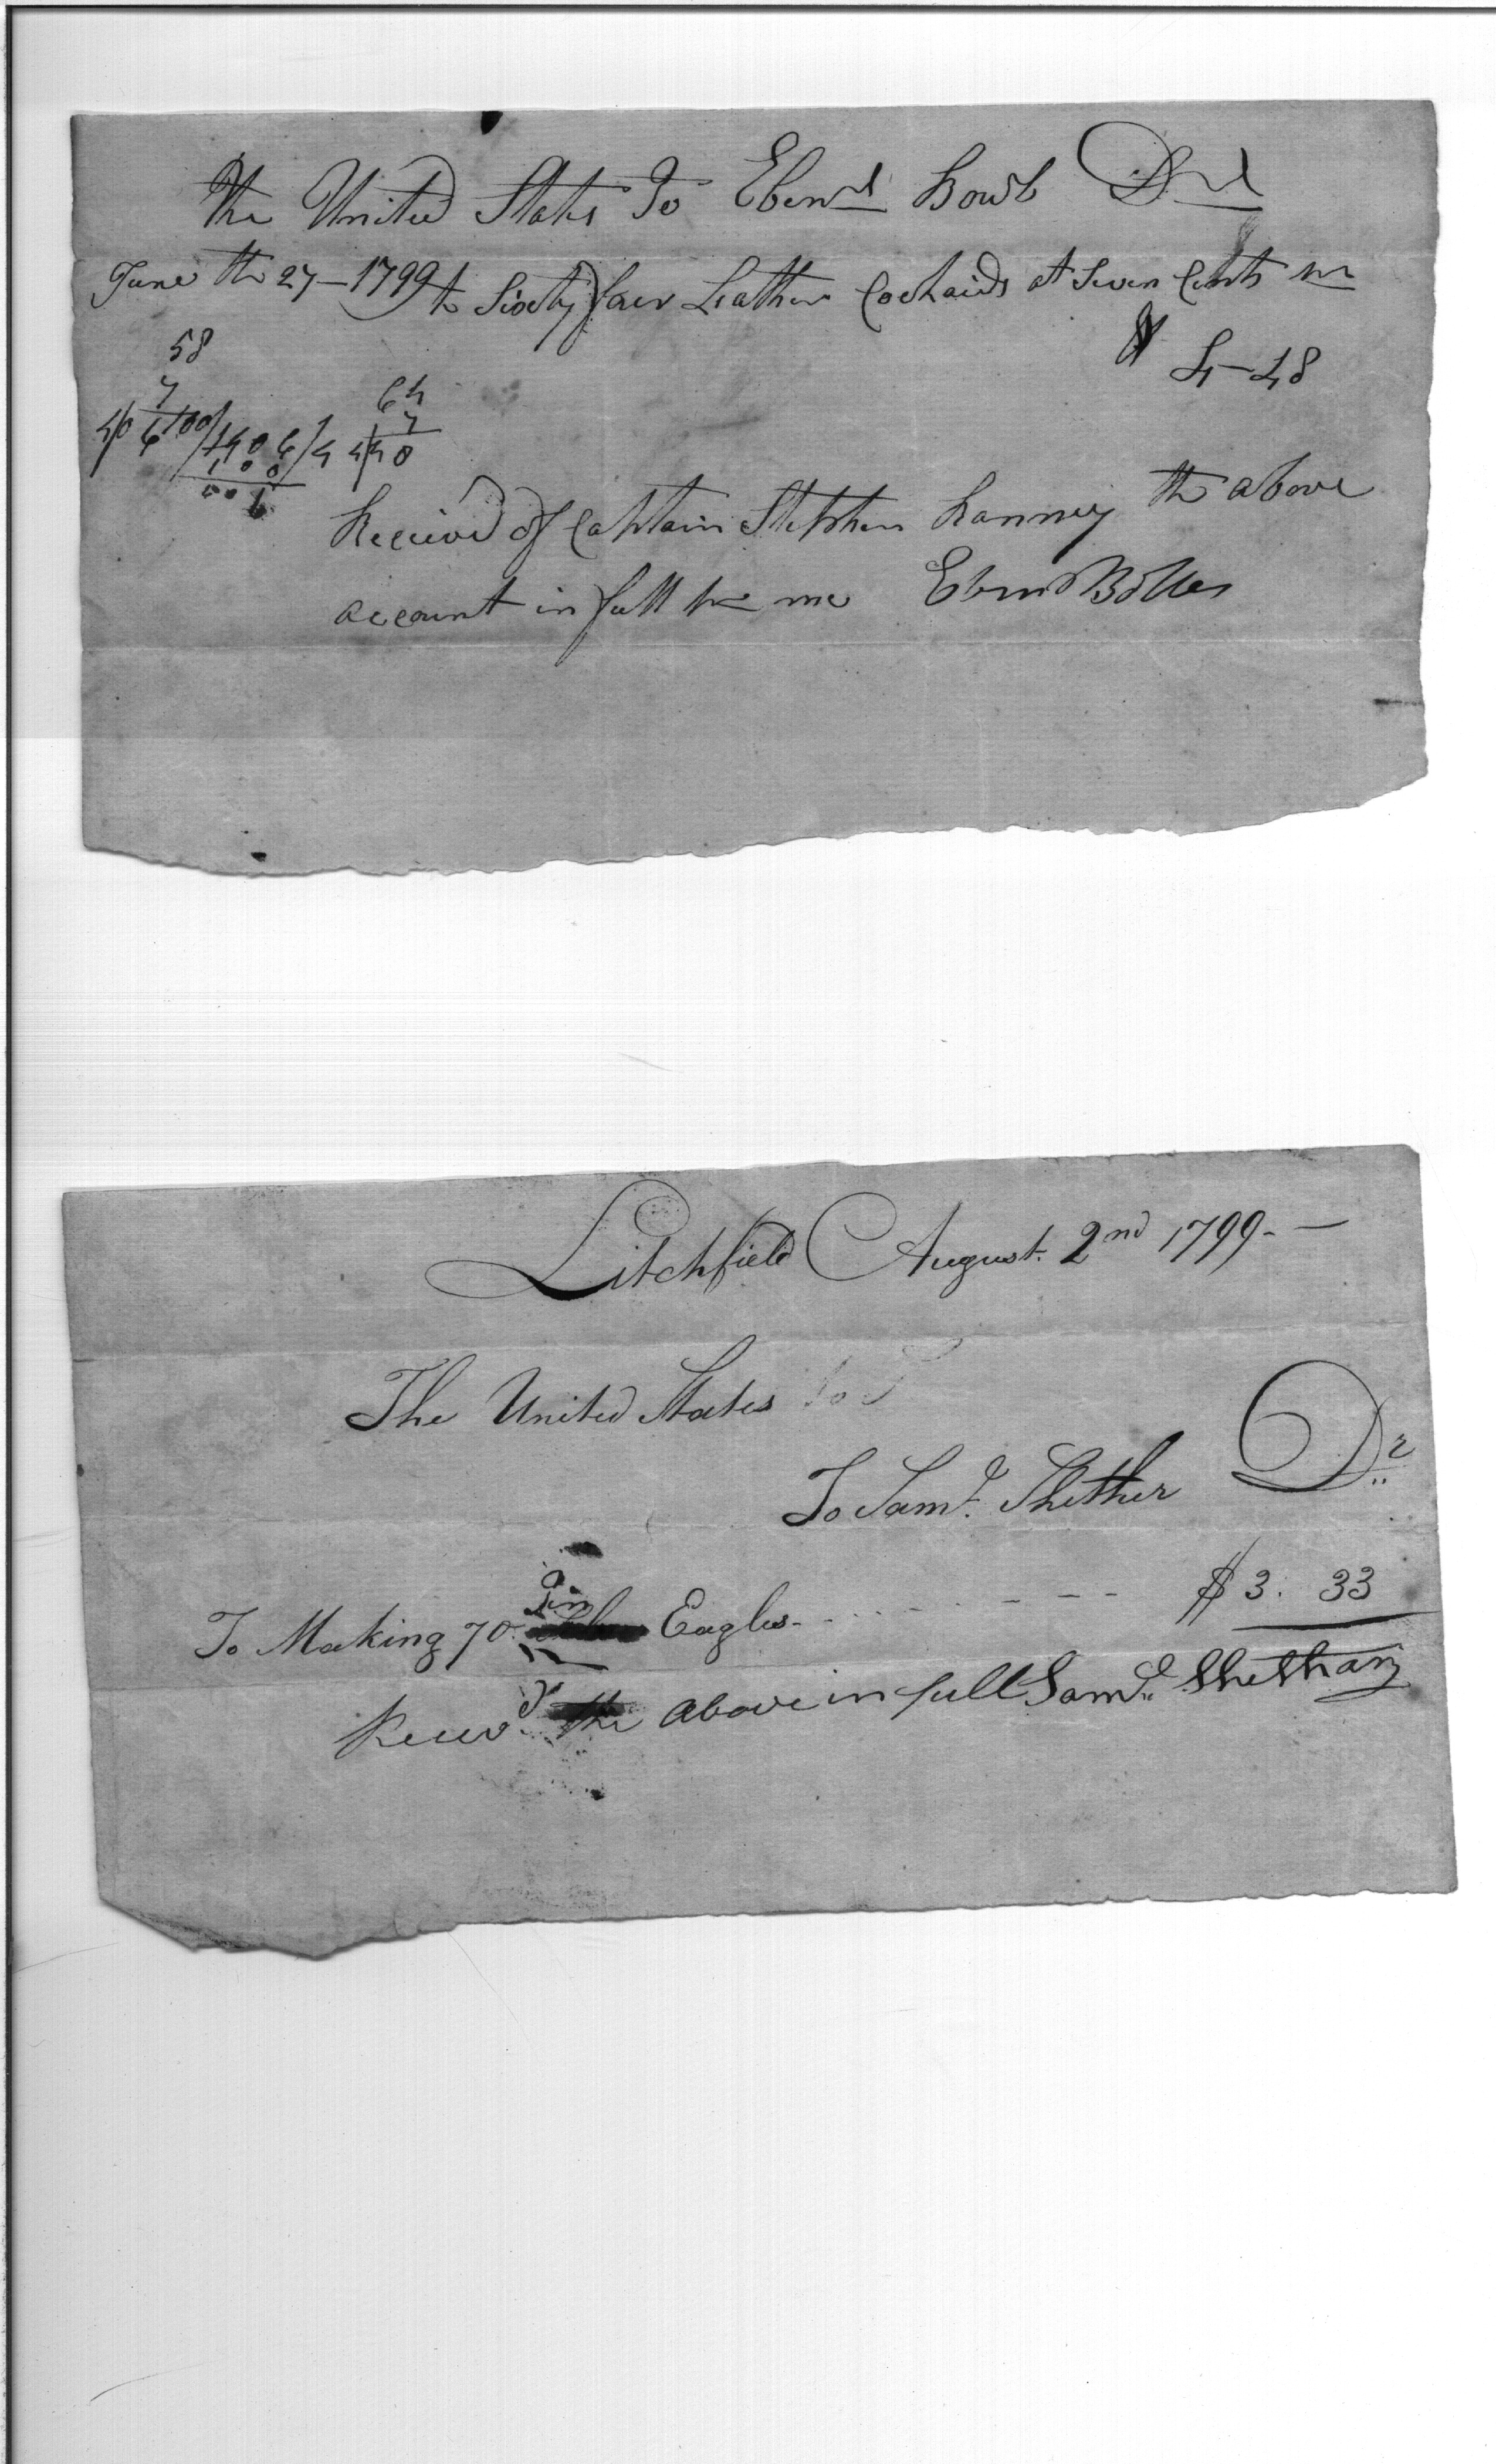 The United States To Ebenr Bowls Dr
June the 27 – 1799 to Sixty four Leather Cockaids at Seven Cents pr
$ 4–48
58
7
4/06
100/406/4
100
006
64
7
4/48
Received of Captain Stephen Ranney the above
account in full pr me Ebenr Bolles
Litchfield August. 2nd 1799. —
The United States to
To Saml. Shether Dr
To Making 70 Tin Eagles - - - - $ 3. 33
Recevd. the above in full Saml. Shethar